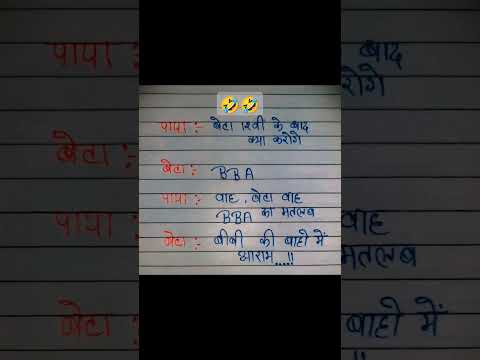 🤣🤣
पापा :- बेटा 12वी के बाद
क्या करोगे
बेटा :- BBA
पापा :- वाह , बेटा वाह
BBA का मतलब
बेटा :- बीवी की बाहो में
आराम....!!